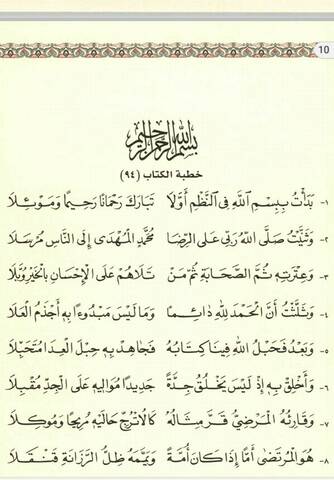 10
بسم الله الرحمن الرحيم
خطبة الكتاب (٩٤)
١- بَدَأْتُ بِبِسْمِ اللَّهِ فِي النَّظْمِ أَوَّلَا تَبَارَكَ رَحْمَانًا رَحِيمًا وَمَوْئِلَا
٢- وَثَنَّيْتُ صَلَّى اللَّهُ رَبِّي عَلَى الرِّضَا مُحَمَّدٍ الْمُهْدَى إِلَى النَّاسِ مُرْسَلَا
٣- وَعِتْرَتِهِ ثُمَّ الصَّحَابَةِ ثُمَّ مَنْ تَلَاهُمْ عَلَى الْإِحْسَانِ بِالْخَيْرِ وُبَّلَا
٤- وَثَلَّثْتُ أَنَّ الْحَمْدَ لِلَّهِ دَائِمًا وَمَا لَيْسَ مَبْدُوءًا بِهِ أَجْذَمُ الْعَلَا
٥- وَبَعْدُ فَحَبْلُ اللَّهِ فِينَا كِتَابُهُ فَجَاهِدْ بِهِ حِبْلَ الْعِدَا مُتَحَبِّلَا
٦- وَأَخْلِقْ بِهِ إِذْ لَيْسَ يَخْلُقُ جِدَّةً جَدِيدًا مُوَالِيهِ عَلَى الْجِدِّ مُقْبِلَا
٧- وَقَارِئُهُ الْمَرْضِيُّ قَرَّ مِثَالُهُ كَالْاُتْرُجِّ حَالَيْهِ مُرِيحًا وَمُوكِلَا
٨- هُوَ الْمُرْتَضَى أَمًّا إِذَا كَانَ أُمَّةً وَيَمَّمَهُ ظِلُّ الرَّزَانَةِ قَنْقَلَا